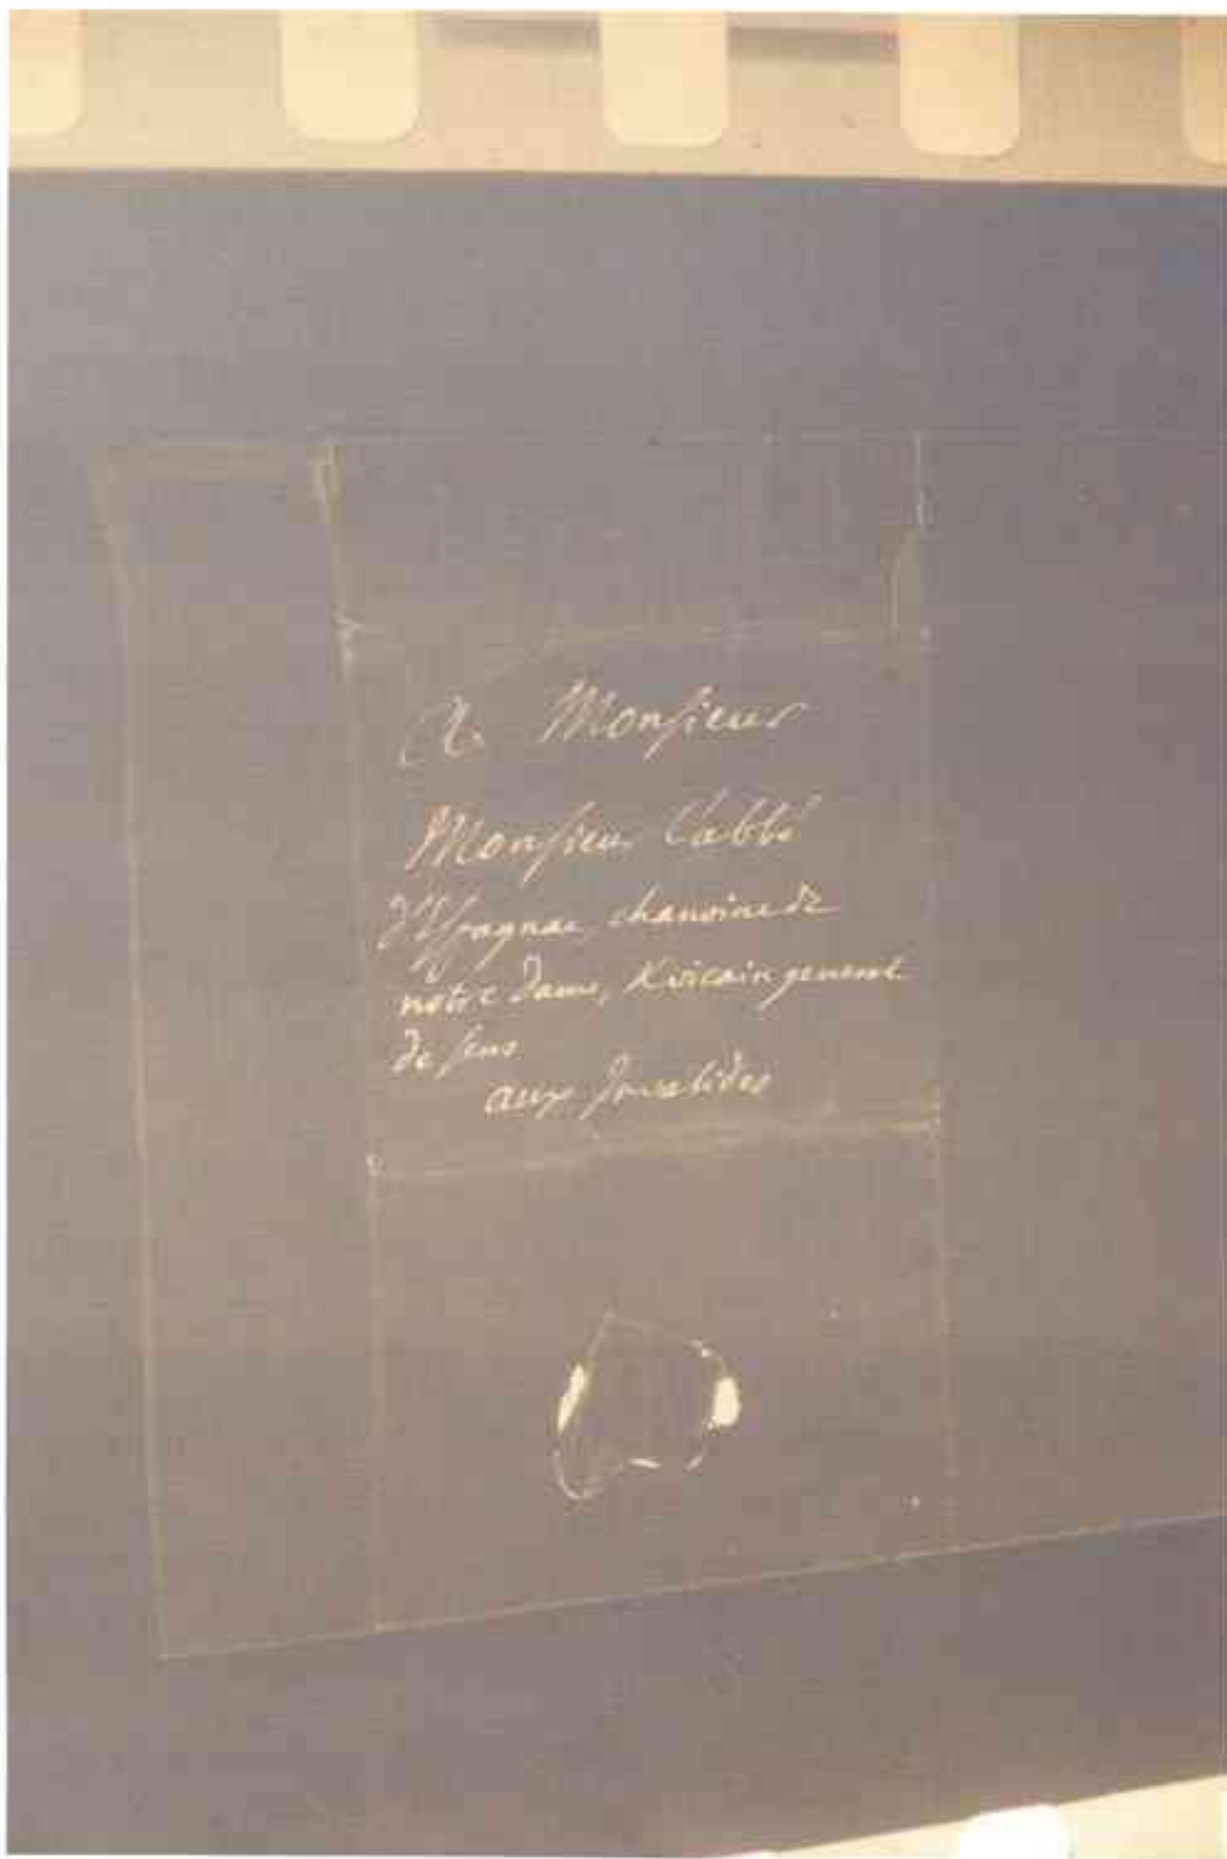 A Monsieur
Monsieur l'abbé
d'Espagnac chanoine de
notre Dame, & vicair general
de sens
aux Invalides